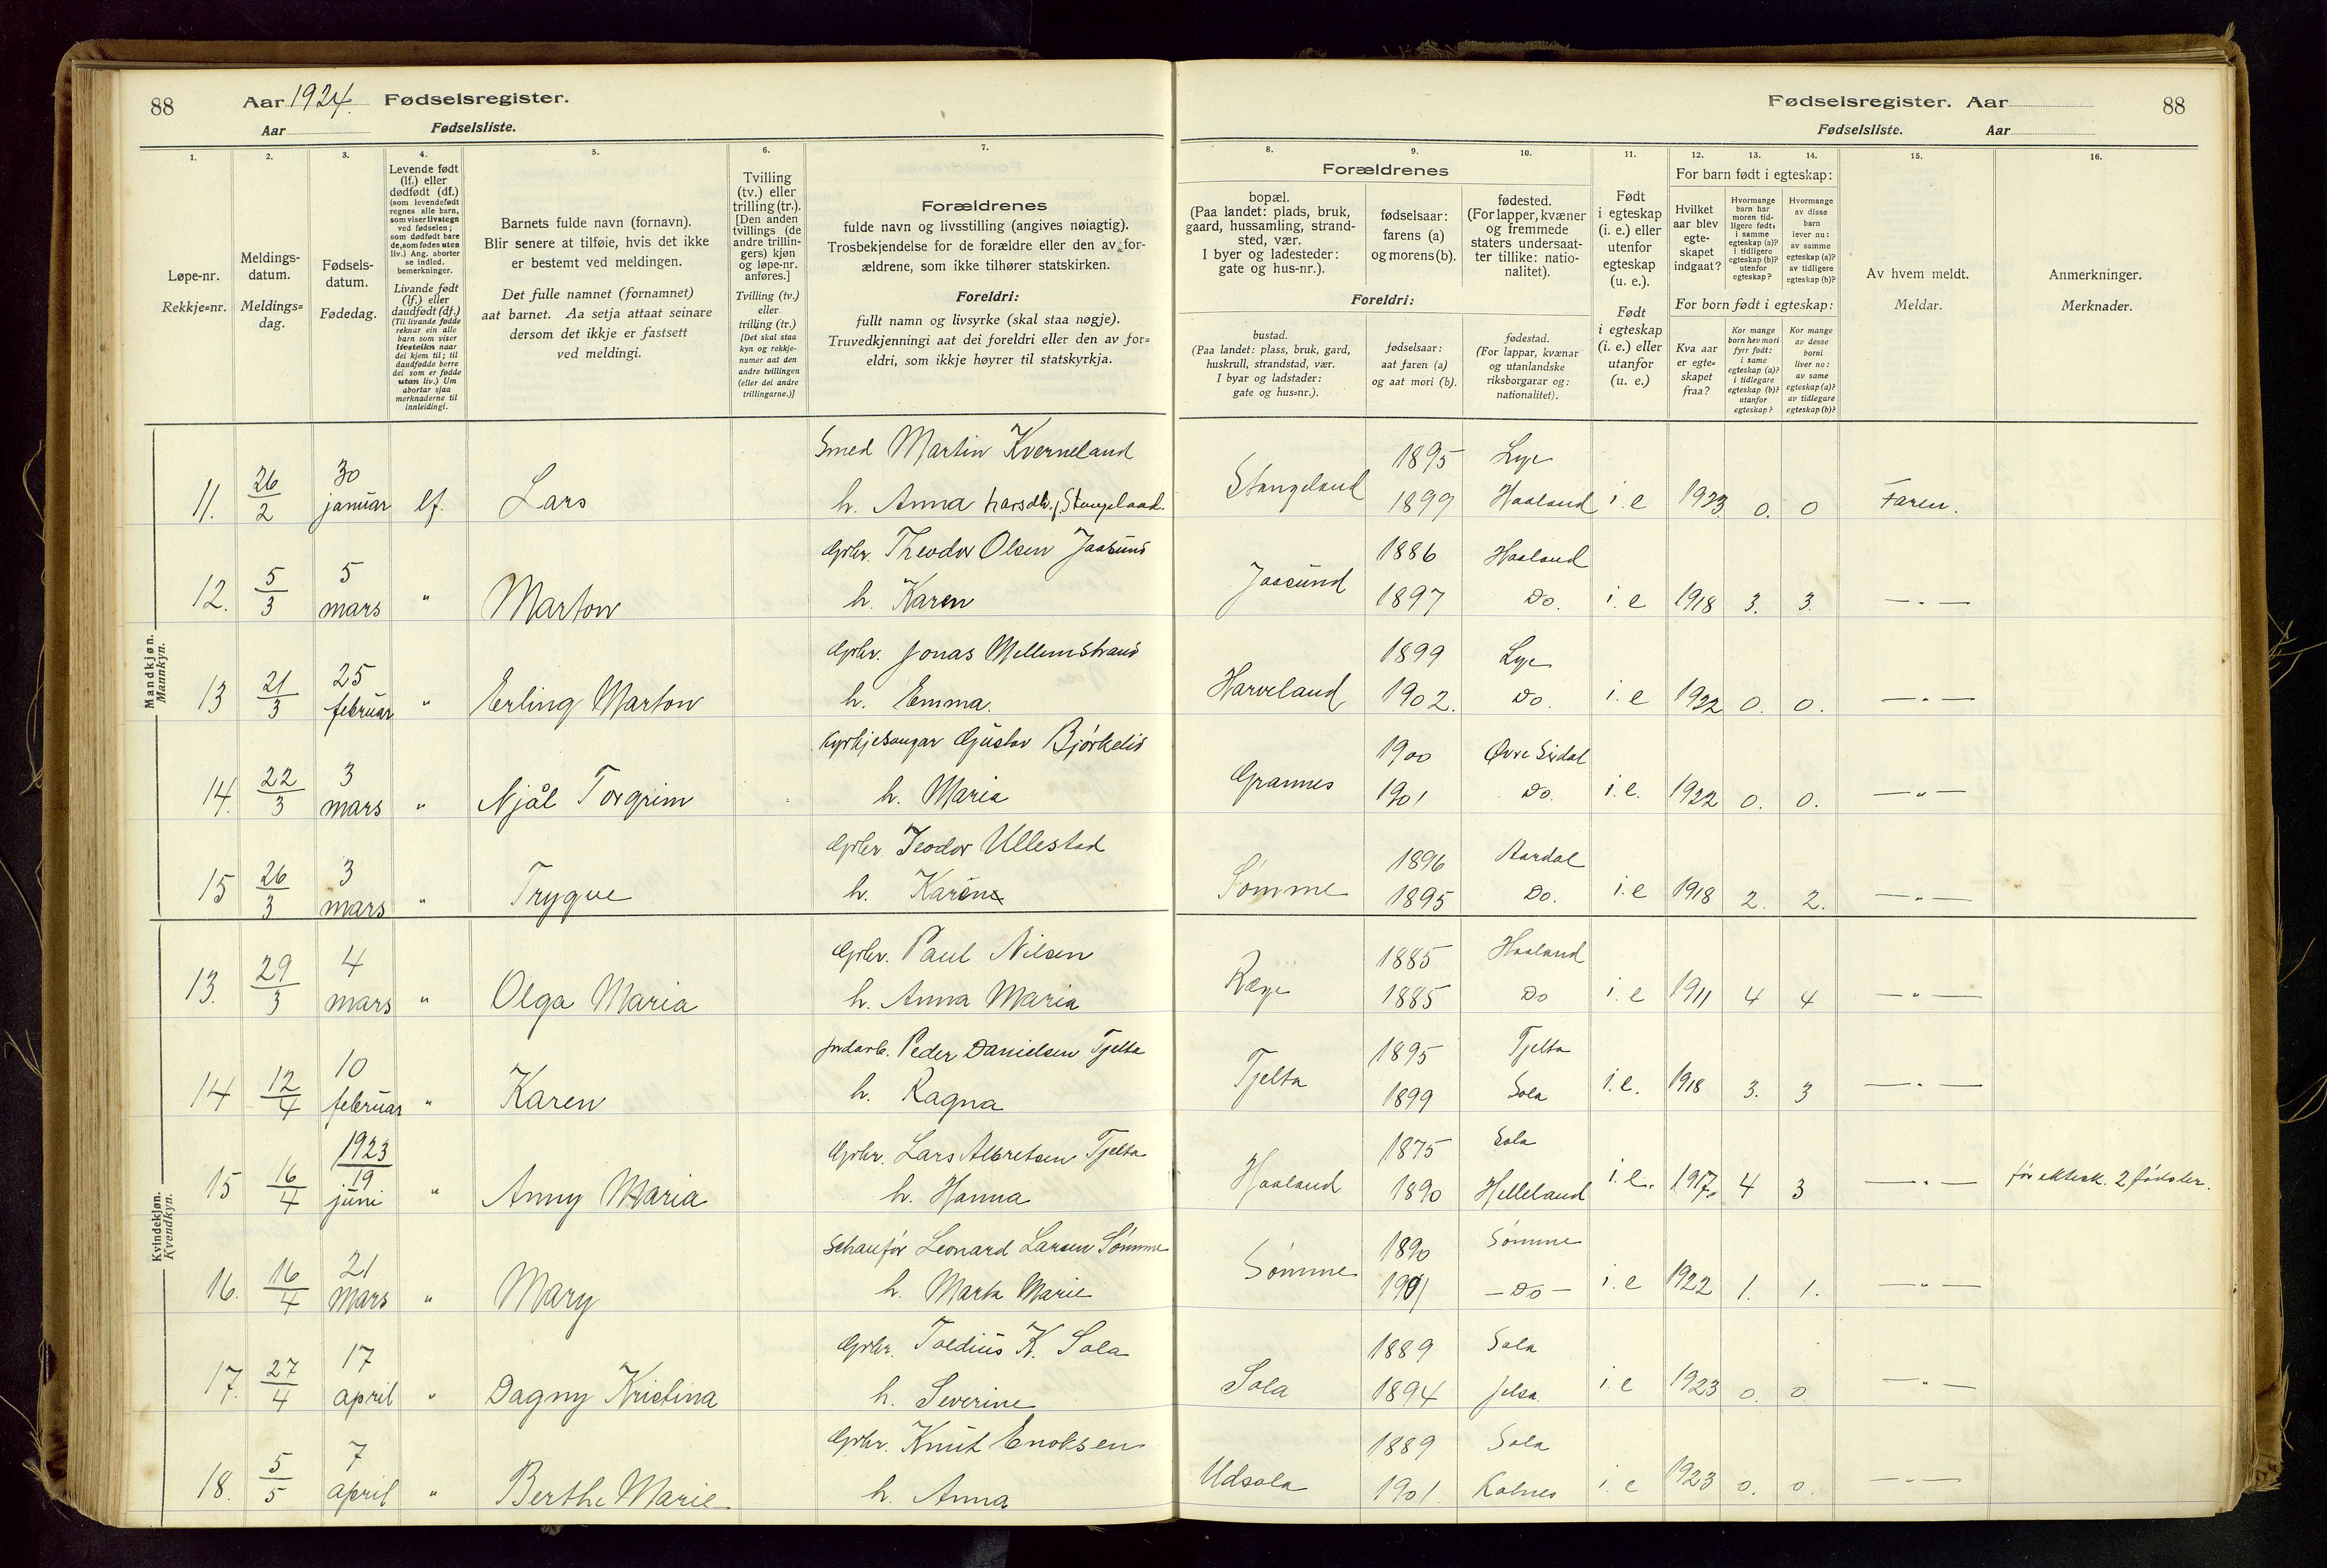 88 Aar 1924. Fødselsregister.
Aar Fødselsliste.
Fødselsregister. Aar 88
Fødselsliste. Aar
1. 2. 3. 4. 5. 6. 7. 8. 9. 10. 11. 12. 13. 14. 15. 16.
Løpe-nr.
Rekkje=nr.
Meldings-
datum.
Meldings=
dag.
Fødsels-
datum.
Fødedag.
Levende født
(lf.) eller
dødfødt (df.)
(som levendefødt
regnes alle barn,
som viser livstegn
ved fødselen;
som dødfødt bare
de, som fødes uten
liv.) Ang. aborter
se indled.
bemerkninger.
Livande født
(lf.) eller
daudfødt (df.)
(Til livande fødde
reknar ein alle
barn som viser
livsteikn naar
dei kjem til; til
daudfødde berre
dei som er fødde
utan liv.) Um
abortar sjaa
merknaderne til
innleidingi.
Barnets fulde navn (fornavn).
Blir senere at tilføie, hvis det ikke
er bestemt ved meldingen.
Det fulle namnet (fornamnet)
aat barnet. Aa setja attaat seinare
dersom det ikkje er fastsett
ved meldingi.
Tvilling
(tv.) eller
trilling (tr.).
[Den anden
tvillings (de
andre trillin-
gers) kjøn
og løpe-nr.
anføres.]
Tvilling (tv.)
eller
trilling (tr.)
[Det skal staa
kyn og rekkje-
numer aat den
andre tvillingen
(eller dei andre
trillingarne.)]
Forældrenes
fulde navn og livsstilling (angives nøiagtig).
Trosbekjendelse for de forældre eller den av for-
ældrene, som ikke tilhører statskirken.
Foreldri:
fullt namn og livsyrke (skal staa nøgje).
Truvedkjenningi aat dei foreldri eller den av for=
eldri, som ikkje høyrer til statskyrkja.
Forældrenes
bopæl.
(Paa landet: plads, bruk,
gaard, hussamling, strand-
sted, vær.
I byer og ladesteder:
gate og hus-nr.).
fødselsaar:
farens (a)
og morens (b).
fødested.
(For lapper, kvæner
og fremmede
staters undersaat-
ter tillike: natio-
nalitet).
Foreldri:
bustad.
(Paa landet: plass, bruk, gard,
huskrull, strandstad, vær.
I byar og ladstader:
gate og hus=nr.).
fødselsaar:
aat faren (a)
og aat mori (b).
fødestad.
(For lappar, kvænar
og utanlandske
riksborgarar og:
nationalitet).
Født
i egteskap
(i. e.) eller
utenfor
egteskap
(u. e.).
Født
i egteskap
(i. e.) eller
utanfor
(u. e.)
For barn født i egteskap:
Hvilket
aar blev
egte-
skapet
indgaat?
Hvormange
barn har
moren tid-
ligere født:
i samme
egteskap (a)?
i tidligere
egteskap (b)?
utenfor
egteskap?
Hvormange
av disse
barn
lever nu:
av samme
egteskap (a)?
av tidligere
egteskap (b)?
For born født i egteskap:
Kva aar
er egte=
skapet
fraa?
Kor mange
born hev mori
fyrr født:
i same
egteskap (a)?
i tidlegare
egteskap (b)?
utanfor
egteskap?
Kor mange
av desse
borni
liver no:
av same
egteskap (a)?
av tidlegare
egteskap (b)?
Av hvem meldt.
Meldar.
Anmerkninger.
Merknader.
Mandkjøn.
Mannkyn.
Smed Martin Kverneland 1895 Lye
11. 26/2 30 januar lf. Lars h. Anna Larsdtr. f. Stangeland. Stangeland 1899 Haaland i. e 1923 0. 0 Faren.
Grbr. Theodor Olsen Jaasund 1886 Haaland
12. 5/3 5 mars " Marton h. Karen Jaasund 1897 Do. i. e 1918 3. 3. — " —
Grbr. Jonas Mellemstrand 1899 Lye
13 21/3 25 februar " Erling Marton h. Emma. Harveland 1902. Do. i. e 1922 0. 0. — " —
Kyrkjesongar Gustav Bjørkelid 1900 Øvre Sirdal
14. 22/3 3 mars " Njål Torgrim h. Maria Grannes 1901 Do. i. e. 1922 0. 0. — " —
Grbr. Teodor Ullestad 1896 Aardal
15 26/3 3 mars " Trygve h. Karen Sømme 1895 Do. i. e 1918 2. 2. — " —
Kvindekjøn.
Kvendkyn.
Grbr. Paul Nilsen 1885 Haaland
13. 29/3 4 mars " Olga Maria h. Anna Maria Ræge 1885 Do i. e 1911 4 4 — " —
Jordarb. Peder Danielsen Tjelta 1895 Tjelta
14 12/4 10 februar " Karen h. Ragna Tjelta 1899 Sola i. e. 1918 3. 3 — " —
1923 Grbr. Lars Albretsen Tjelta 1875 Sola
15 16/4 19 juni " Anny Maria h. Hanna Haaland 1890 Helleland i. e. 1917. 4 3 — " — før ektesk. 2 fødsler.
Schaufør Leonard Larsen Sømme 1890 Sømme
16. 16/4 21 Mars " Mary h. Marta Marie Sømme 1901 — Do — i. e 1922 1. 1. — " —
Grbr. Toldius K. Sola 1889 Sola
17. 27/4 17 april " Dagny Kristina h. Severine Sola 1894 Jelsa i. e 1923 0. 0 — " —
Grbr. Knut Enoksen 1889 Sola
18. 5/5 7 april " Berthe Marie h. Anna Udsola 1901. Kolnes i. e 1923 0. 0. — " —